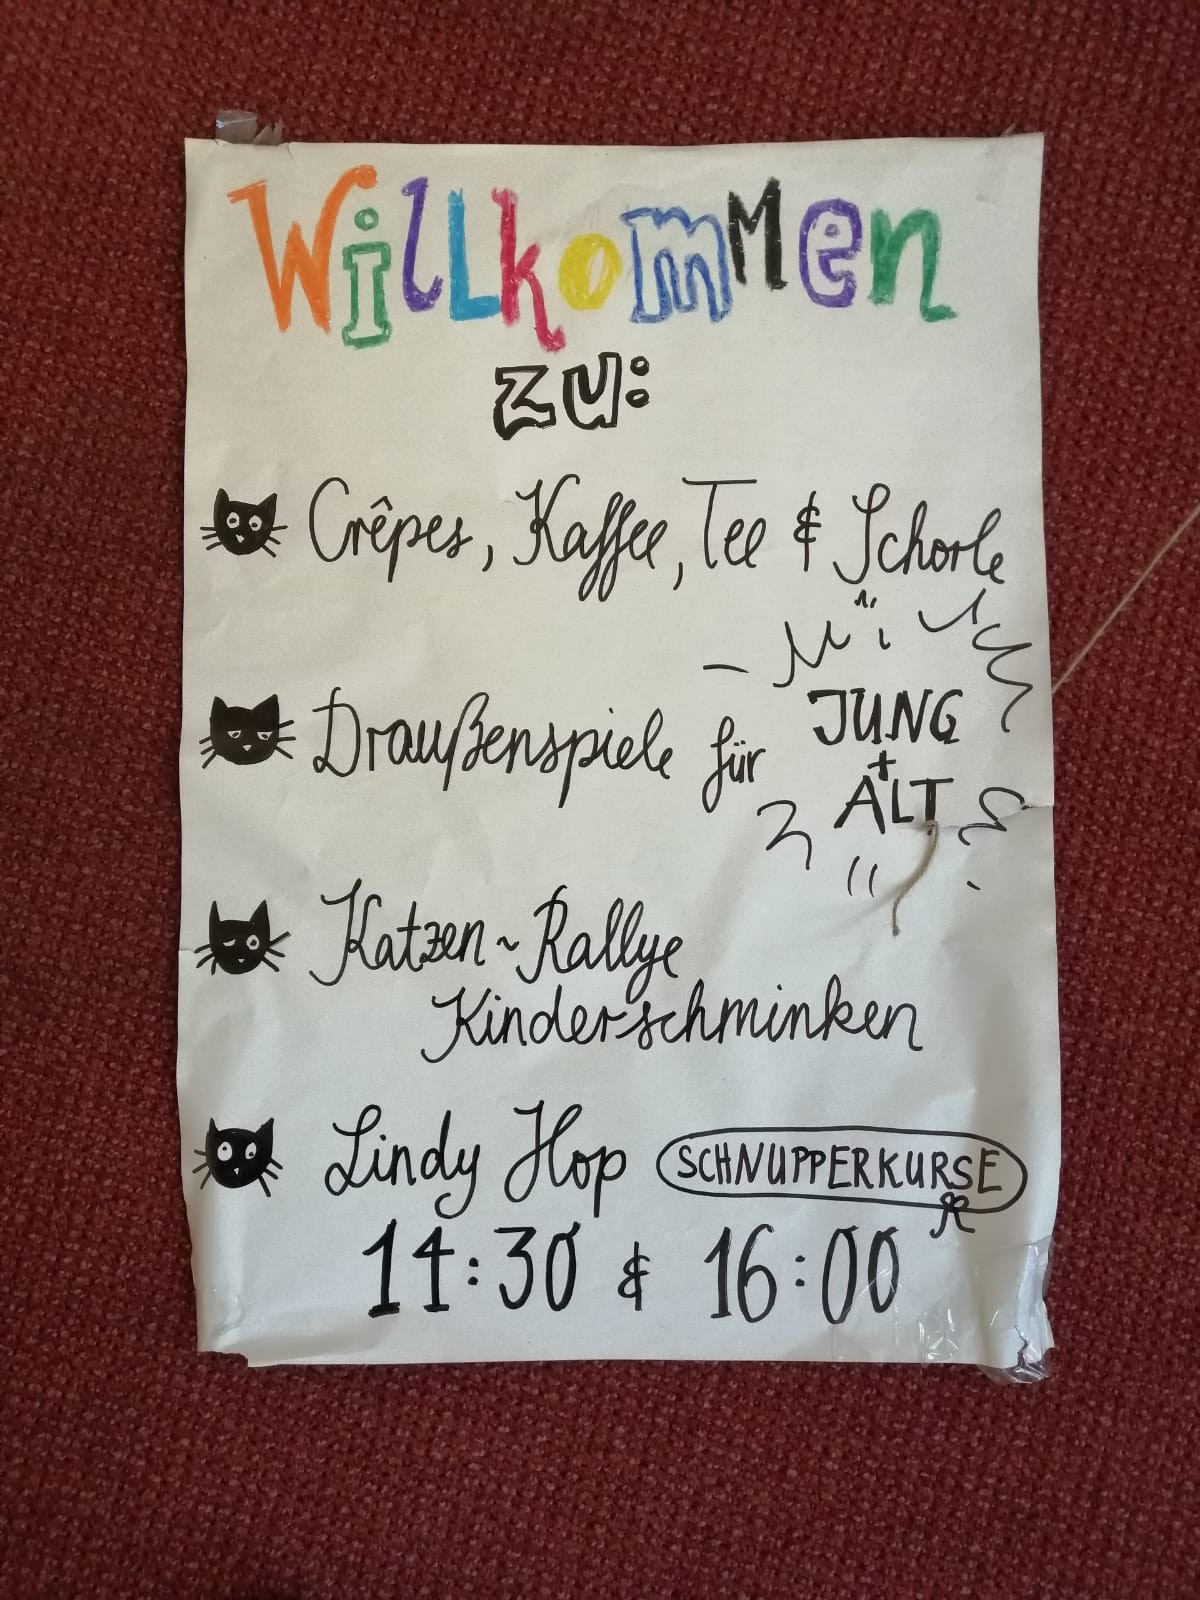 Willkommen
zu:
Crêpes, Kaffee, Tee & Schorle
Draußenspiele für JUNG
+
ALT
Katzen~Rallye
Kinderschminken
Lindy Hop SCHNUPPERKURSE
14:30 & 16:00